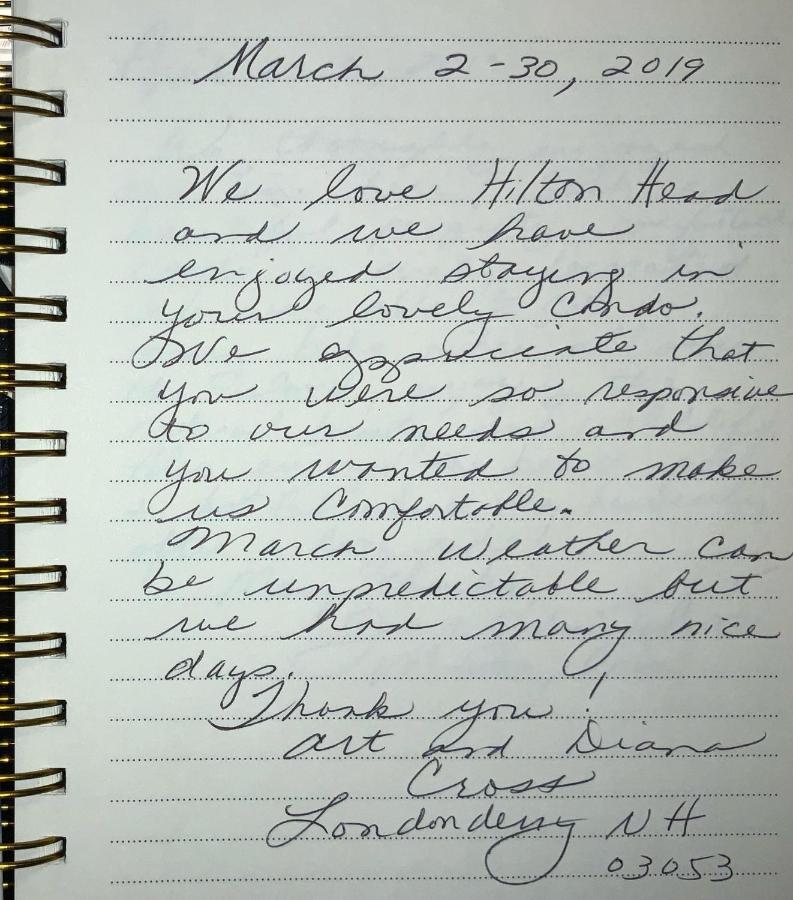 March 2-30, 2019
We love Hilton Head
and we have
enjoyed staying in
your lovely condo.
We appreciate that
you were so responsive
to our needs and
you wanted to make
us comfortable.
March weather can
be unpredictable but
we had many nice
days.
Thank you!
Art and Diana
Cross
Londonderry NH
03053